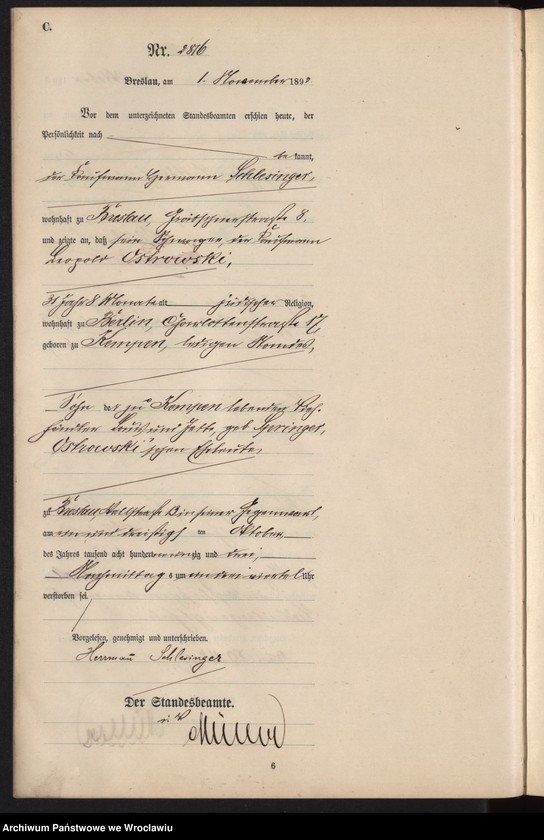 C.
Nr. 2816
Breslau, am 1. November 1893
Vor dem unterzeichneten Standesbeamten erschien heute, der
Persönlichkeit nach
be kannt,
der Kaufmann Hermann Schlesinger,
wohnhaft zu Breslau, 8.
und zeigte an, daß sein Schwager, der Kaufmann
Leopold Ostrowski,
31 Jahr 8 Monate alt jüdischer Religion,
wohnhaft zu Berlin, Charlottenstraße 17
geboren zu Kempen, ledigen Standes,
Sohn der zu Kempen lebenden
händler und geb. Springer,
Ostrowski'schen Eheleute,
zu Breslau, in seiner Gegenwart,
am ein und dreißigsten Oktober
des Jahres tausend acht hundert neunzig und drei,
Nachmittags um drei viertel Uhr
verstorben sei.
Vorgelesen, genehmigt und unterschrieben.
Herrmann Schlesinger
Der Standesbeamte.
i. V.
6
Archiwum Państwowe we Wrocławiu